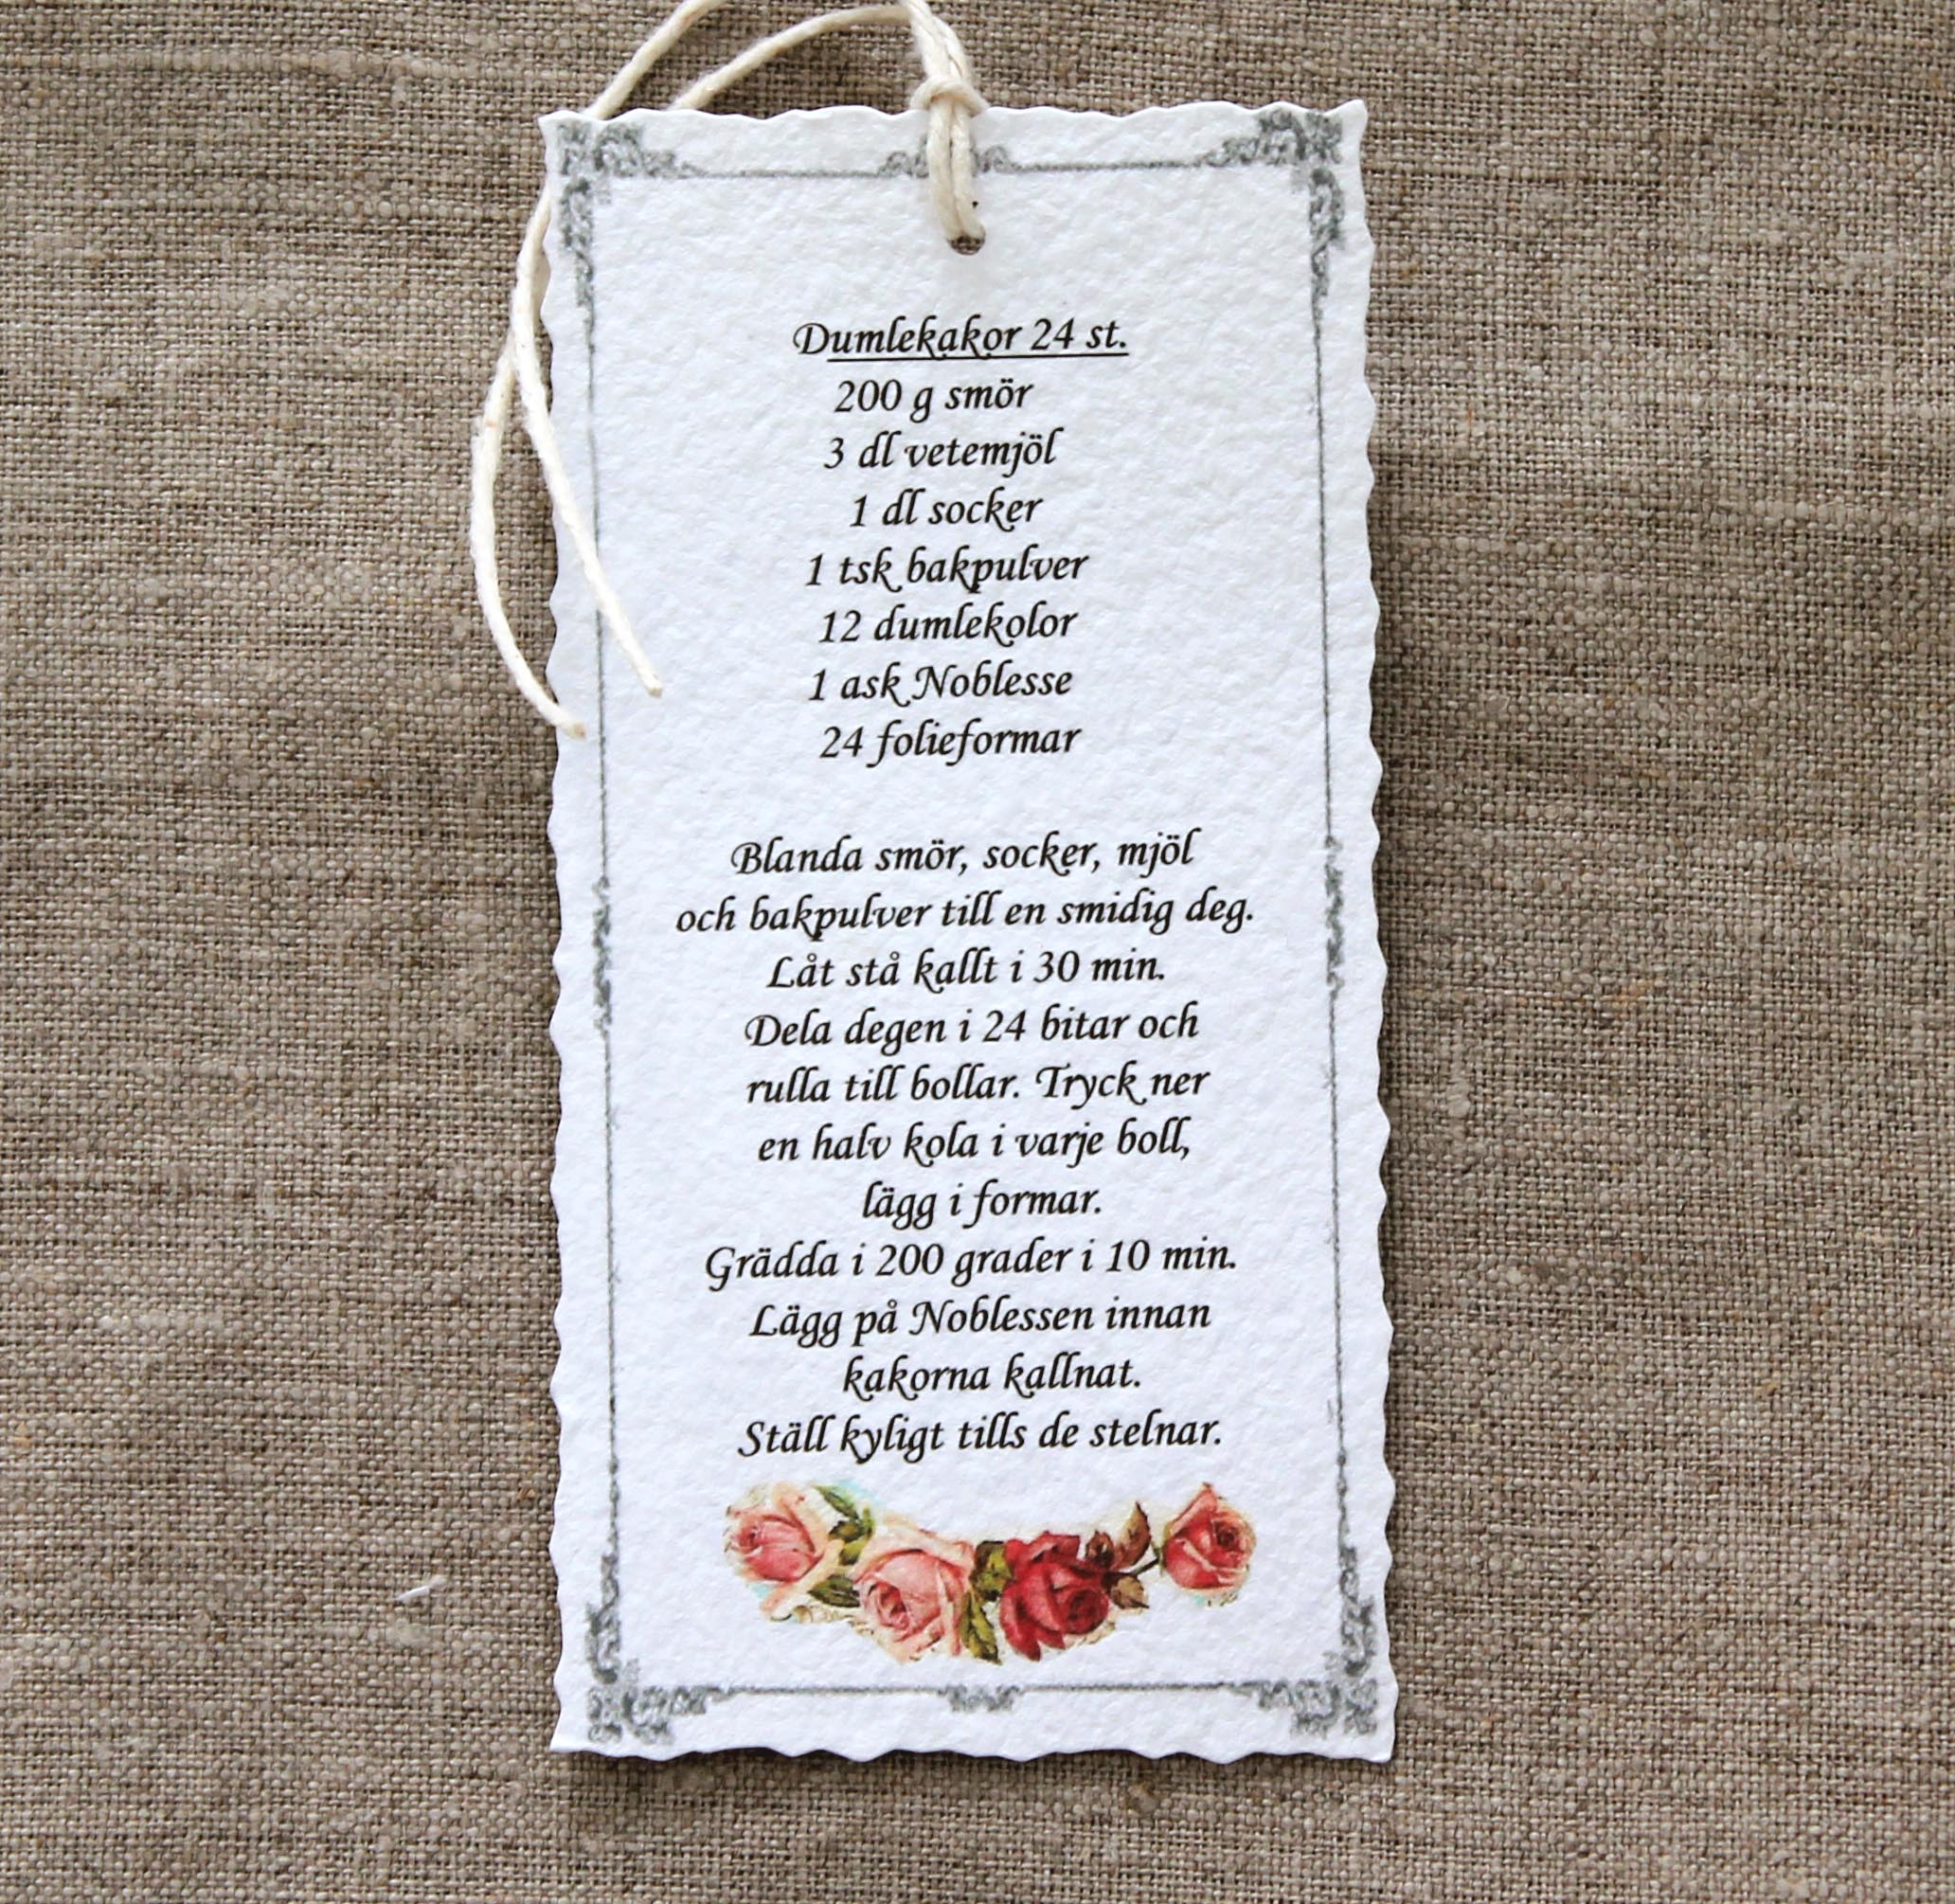 Dumlekakor 24 st.
200 g smör
3 dl vetemjöl
1 dl socker
1 tsk bakpulver
12 dumlekolor
1 ask Noblesse
24 folieformar
Blanda smör, socker, mjöl
och bakpulver till en smidig deg.
Låt stå kallt i 30 min.
Dela degen i 24 bitar och
rulla till bollar. Tryck ner
en halv kola i varje boll,
lägg i formar.
Grädda i 200 grader i 10 min.
Lägg på Noblessen innan
kakorna kallnat.
Ställ kyligt tills de stelnar.